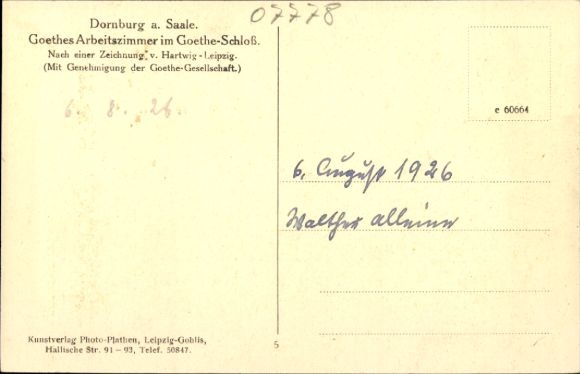 07778
Dornburg a. Saale.
Goethes Arbeitszimmer im Goethe-Schloß.
Nach einer Zeichnung v. Hartwig-Leipzig.
(Mit Genehmigung der Goethe-Gesellschaft.)
6. 8. 26.
e 60664
6. August 1926
Walther alleine
Kunstverlag Photo-Plathen, Leipzig-Gohlis,
Hallische Str. 91 – 93, Telef. 50847.
5